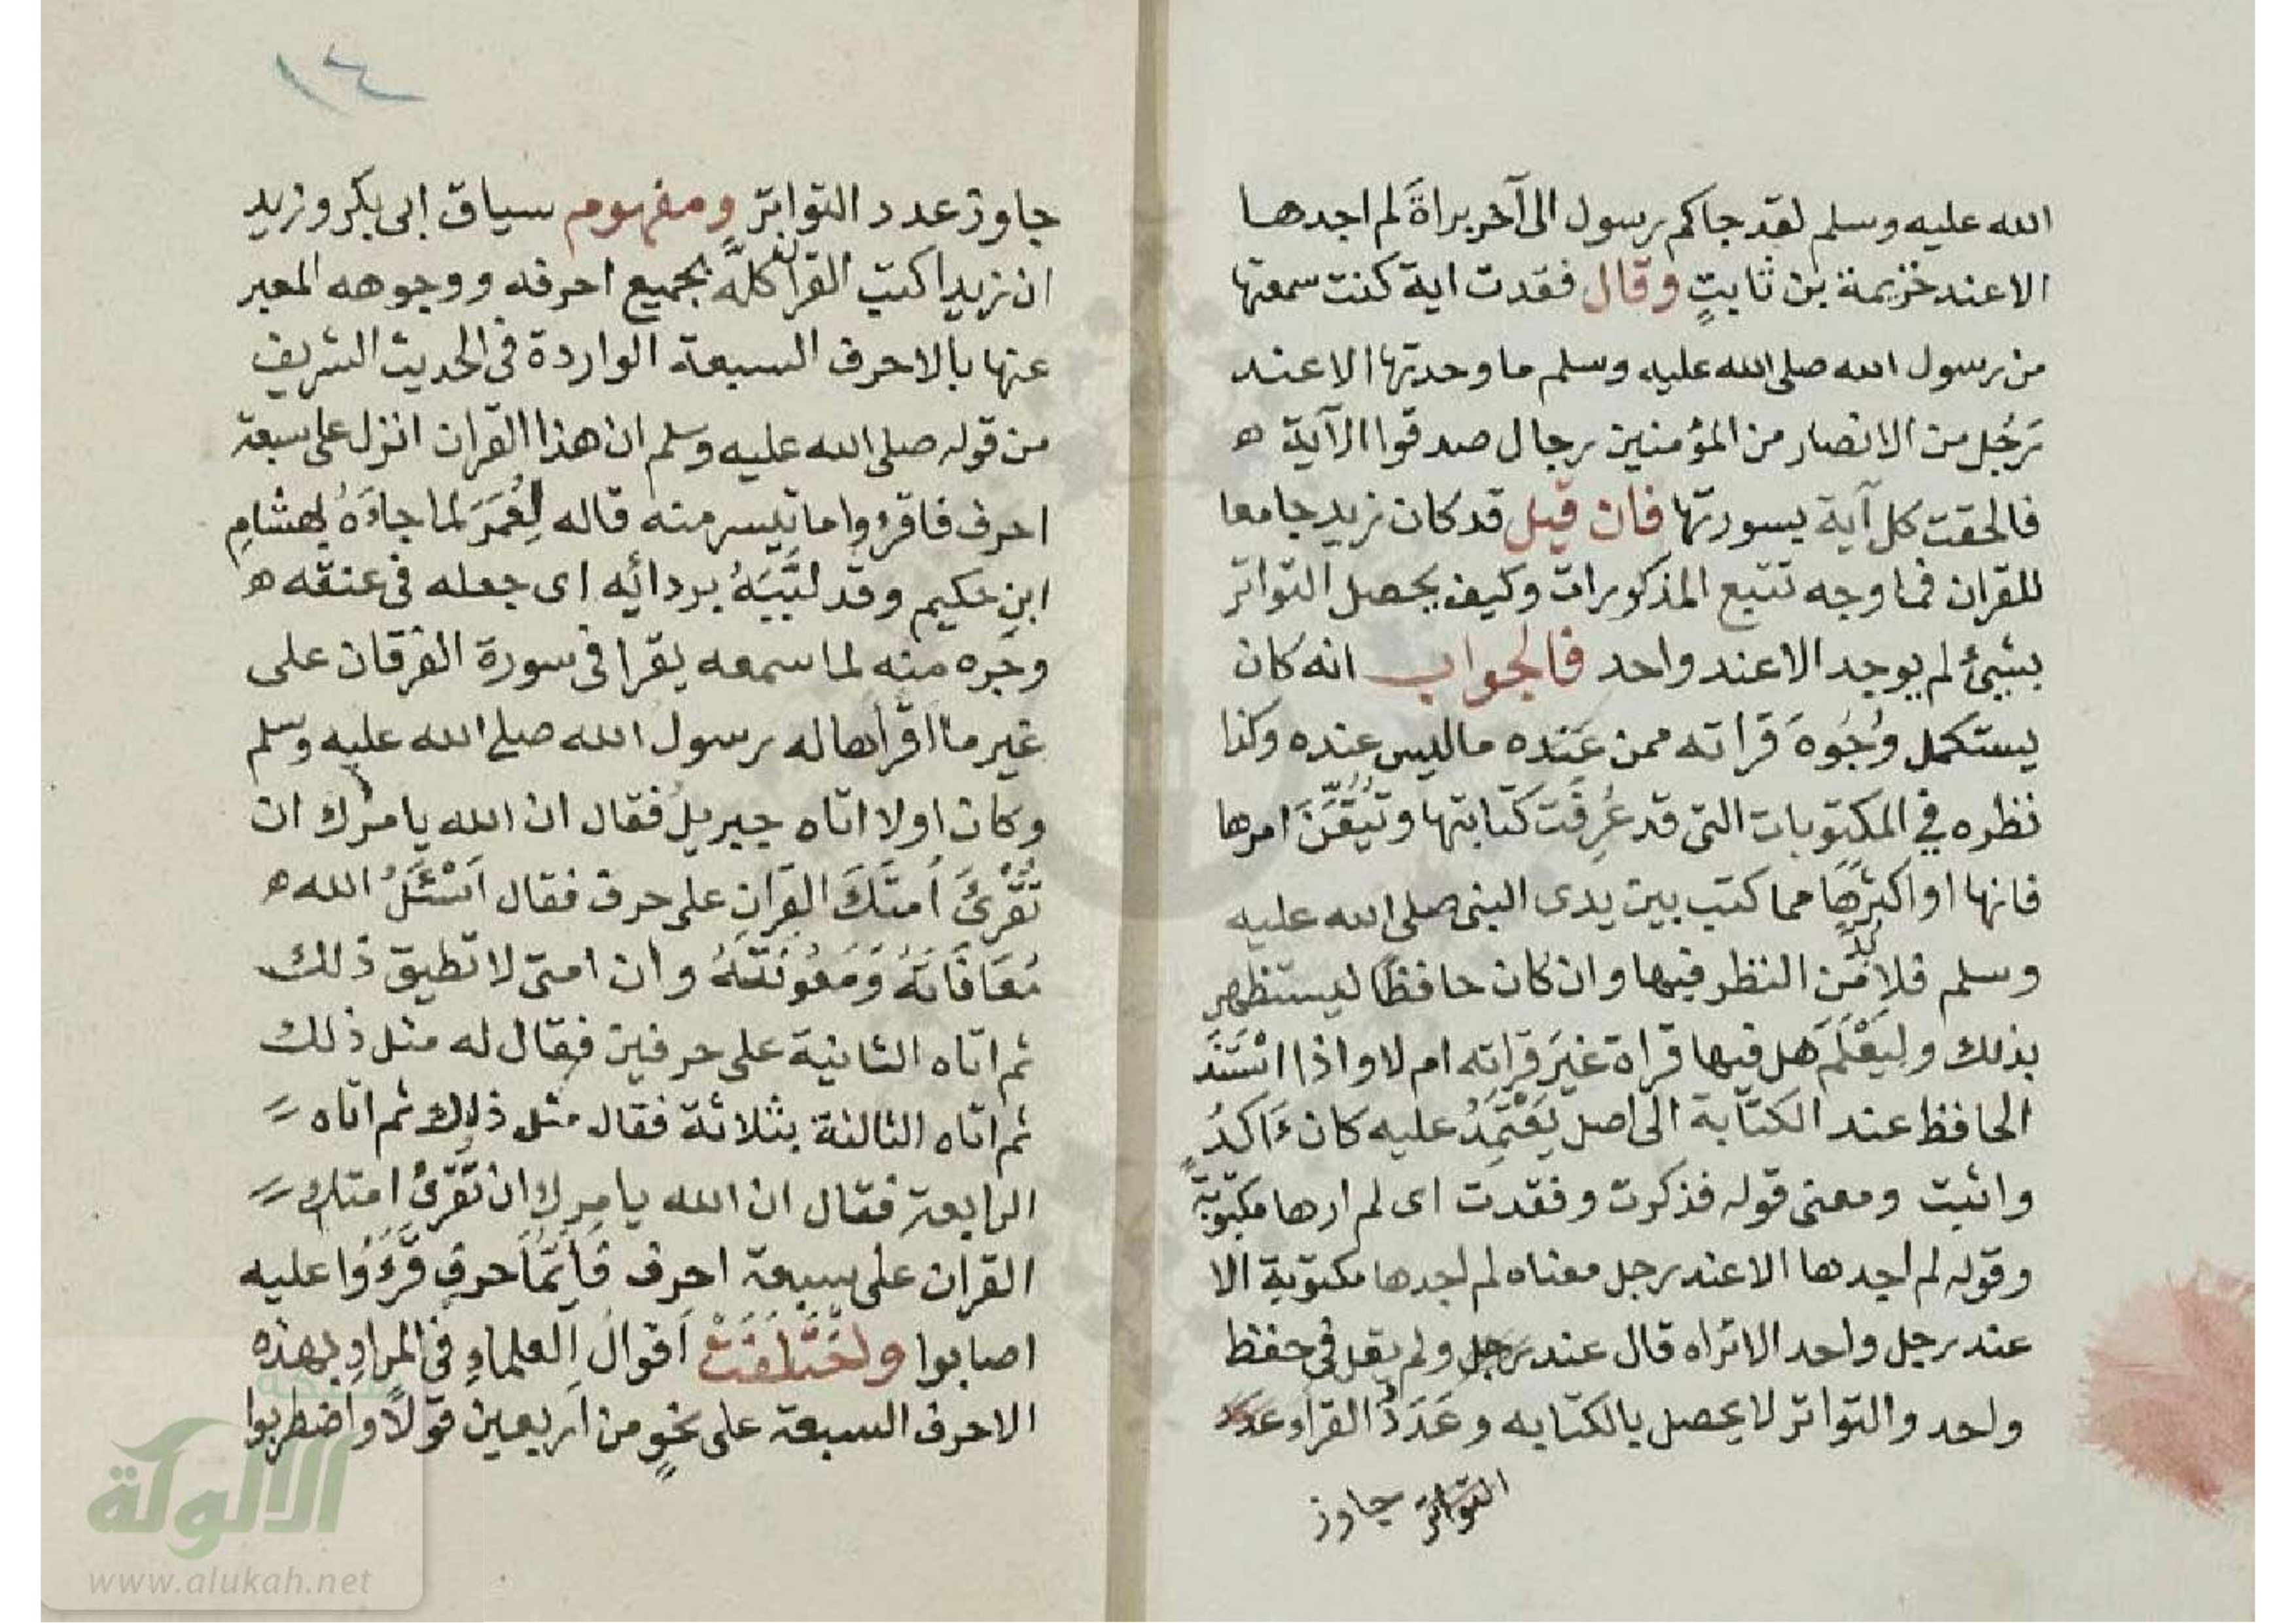 الله عليه وسلم لقد جاكم رسول الى آخر براةَ لم اجدها
الا عند خزيمة بن ثابتٍ وقال فقدت اية كنت سمعتها
من رسول الله صلى الله عليه وسلم ما وحدتها الا عند
رَجُل من الانصار من المؤمنين رجال صدقوا الآية ه
فالحقت كل آية بسورتها فان قيل قد كان زيد جامعا
للقران فما وجه تتبع المذكورات وكيف يحصل التواتر
بشيئ لم يوجد الا عند واحد فالجواب انه كان
يستكمل وُجُوهَ قراته ممن عَنده ما ليس عنده وكذا
نظره في المكتوبات التى قد عُرِفَت كتابتها وتُيُقِّنَ امرها
فانها او اكثرها مما كتب بين يدى النبى صلى الله عليه
وسلم فلا بُدَّ مِن النظر فيها وان كان حافظًا ليستظهر
بذلك ولِيَعْلَمَ هل فيها قراة غيَر قراته ام لا واذا اسْتَنَدَ
الحافظ عند الكتابة الى اصل يَعْتَمِدُ عليه كان ءَاكَدُ
واثبت ومعنى قوله فذكرت وفقدت اى لم ارها مكتوبةً
وقوله لم اجدها الا عند رجل معناه لم اجدها مكتوبة الا
عند رجل واحد الا تراه قال عند رَجل ولم يقل فى حفظ
واحد والتواتر لا يحصل بالكتابه وعَدَدُ القراء عدد
التواتر جاوز
١٤
جاوز عدد التواتر ومفهوم سياق ابى بكر وزيد
ان زيدا كتب القران كلَّه بجميع احرفه ووجوهه المعبر
عنها بالاحرف السبعة الواردة فى الحديث الشريف
من قوله صلى الله عليه وسلم ان هذا القران انزل على سبعة
احرف فاقرؤا ما تيسر منه قاله لِعُمَرَ لما جاءَهُ بهشامِ
ابنِ حكيم وقد لبَّبَهُ بردائِه اى جعله فى عنقه ه
وجره منه لما سمعه يقرا فى سورة الفرقان على
غير ما اقراها له رسول الله صلى الله عليه وسلم
وكان اولا اتاه جبريلُ فقال ان الله يامرُك ان
تُقْرِئَ اُمتَكَ القران على حرف فقال اَسْئَلُ الله ه
مُعَافَاتَهُ وَمَعُونَتَهُ وان امتى لا تطيق ذلك
ثم اتاه الثانية على حرفين فقال له مثل ذلك
ثم اتاه الثالثة بثلاثة فقال مثل ذلك ثم اتاه
الرابعة فقال ان الله يامرك ان تُقْرِئَ امتك
القران على سبعة احرف فاَيّمَا حرفٍ قَرَءُوا عليه
اصابوا واختَلَفَتْ اَقوالُ العلماءِ فى المرادِ بهذه
الاحرف السبعة على نحوٍ من اربعين قولاً واضطربوا
شبكة
الألوكة
www.alukah.net